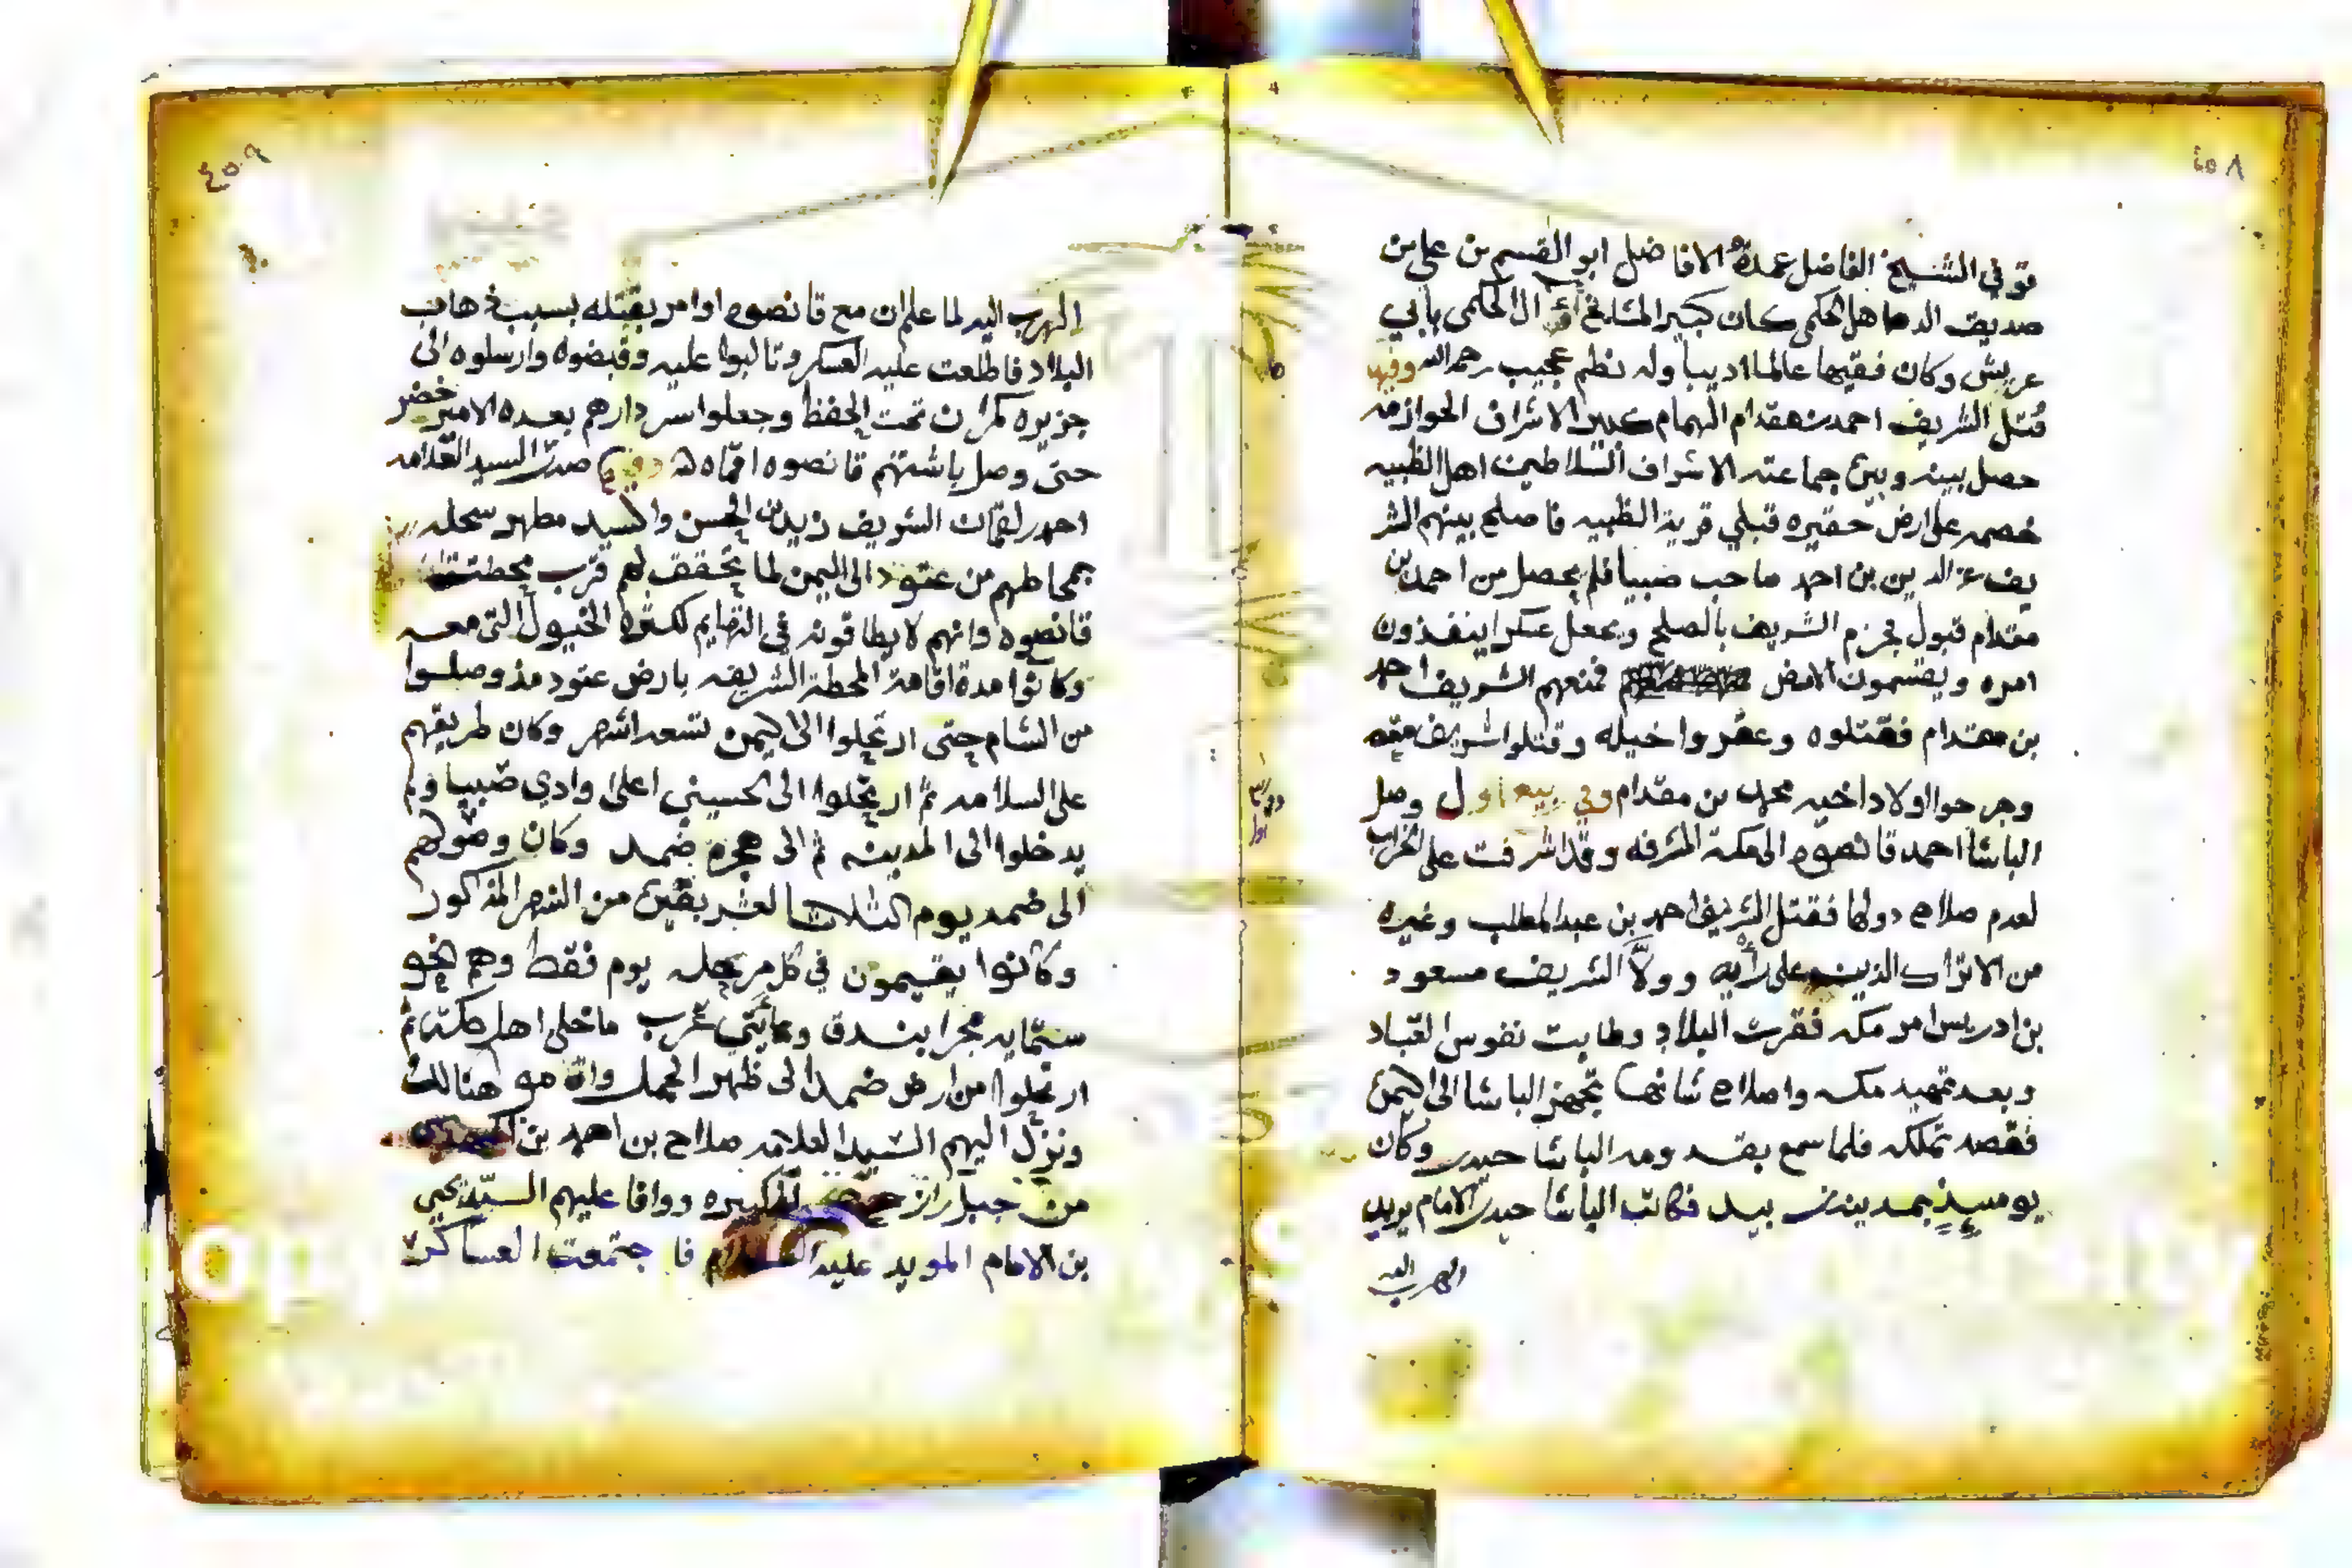 ٤٥٨
توفي الشيخ الفاضل عمدة الافاضل ابو القسم بن علي بن
صديق الحكمي كان كبير المشايخ ال الحكمي بابي
عريش وكان فقيها عالما اديبا وله نظم عجيب رحمه الله وفيها
قتل الشريف احمد بن مقدام الهمام كبير الاشراف الخوازمه
حصل بينه وبين جماعته الاشراف السلاطين اهل الظبيه
خصمه على ارض حقيره قبلي قرية الظبيه فاصلح بينهم الشر
يف عز الدين بن احمد صاحب صبيا فلم يحصل من احمد بن
مقدام قبول فجزم الشريف بالصلح وجعل عسكرا ينفذون
امره ويقسمون الارض فمنعهم الشريف احمد
بن مقدام فقتلوه وعقروا خيله وقتلوا شريف معه
وجرحوا اولاد اخيه محمد بن مقدام وفي ربيع اول وصل
الباشا احمد قانصوه الى مكة المشرفه وقد اشرفت على الخراب
لعدم صلاح دولها فقتل الشريف احمد بن عبد المطلب وغيره
من الاتراك الذين على رأيه وولا الشريف مسعود
بن ادريس امر مكه فقرت البلاد وطابت نفوس العباد
وبعد تمهيد مكه واصلاح شانها تجهز الباشا الى اليمن
فقصد تملكه فلما سمع بقدومه الباشا حيدر وكان
يومئذ بمدينة زبيد فكاتب الباشا حيدر الامام يريد
الهرب اليه
٤٥٩
الهرب اليه لما علم ان مع قانصوه اوامر بقتله بسبب ذهاب
البلاد فاطلعت عليه العسكر وتالبوا عليه وقبضوه وارسلوه الى
جزيره كمران تحت الحفظ وجعلوا سردارهم بعده الامير خضر
حتى وصل باشتهم قانصوه صدر السيد العلامه
احمد لقمان الشريف زيد بن المحسن والسيد مطهر
بمحاطهم من عتود الى اليمن لما تحقق لهم قرب محطت
قانصوه وانهم لا يطاقونه في التهايم لكثرة الخيول التي معه
وكانوا مدة اقامة المحطة الشريفه بارض عتود مذ وصلوا
من الشام حتى ارتحلوا الى اليمن تسعه اشهر وكان طريقهم
على السلامه ثم ارتحلوا الى الحسيني اعلى وادي صبيا ولم
يدخلوا الى المدينه ثم الى هجرة ضمد وكان وصولهم
الى ضمد يوم الثلاثا لعشر بقين من الشهر المذكور
وكانوا يقيمون في كل مرحله يوم فقط وهم نحو
ستمايه مجرا بندق ومايتي عرب ما خلى اهل مكة ثم
ارتحلوا من ارض ضمد الى ظهر الجمل واقاموا هنالك
ونزل اليهم السيد العلامه صلاح بن احمد بن
من جبل رازح ووافا عليهم السيد يحيى
بن الامام المويد عليه السلام فاجتمعت العساكر